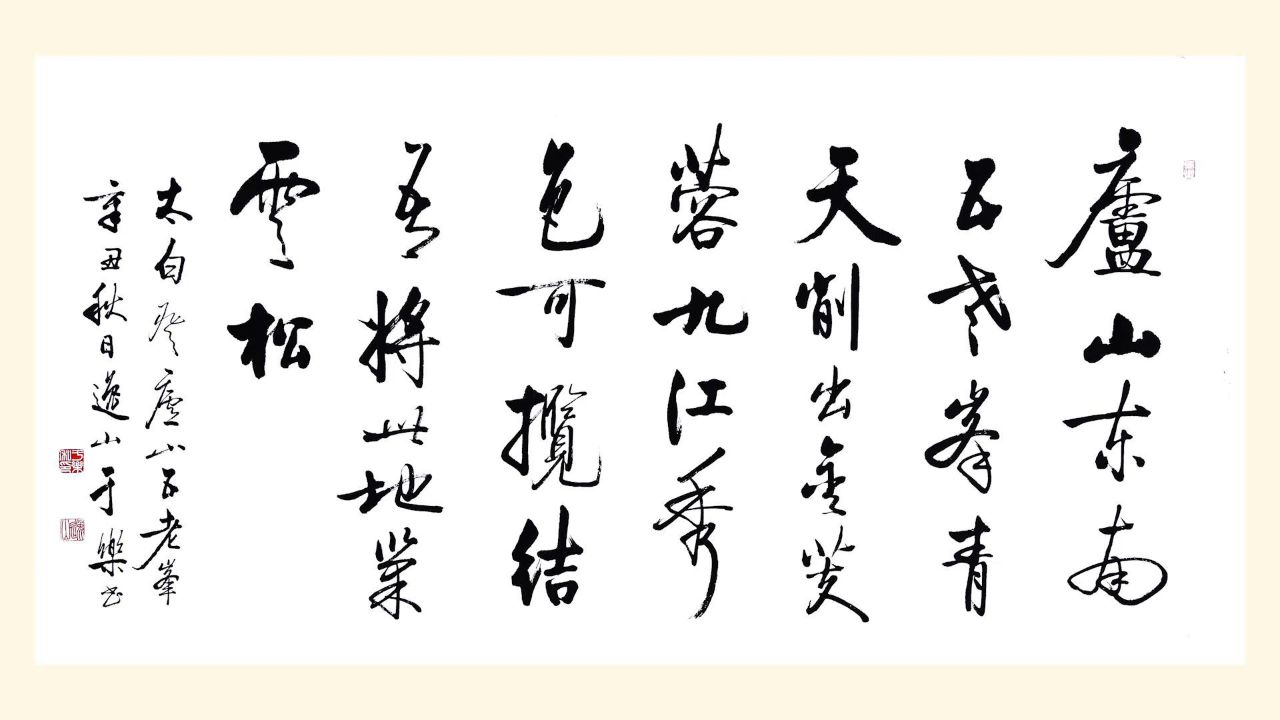 廬山东南
五老峯青
天削出金芙
蓉九江秀
色可攬結
吾將此地巢
雲松
太白登廬山五老峯
辛丑秋日逸山于樂书